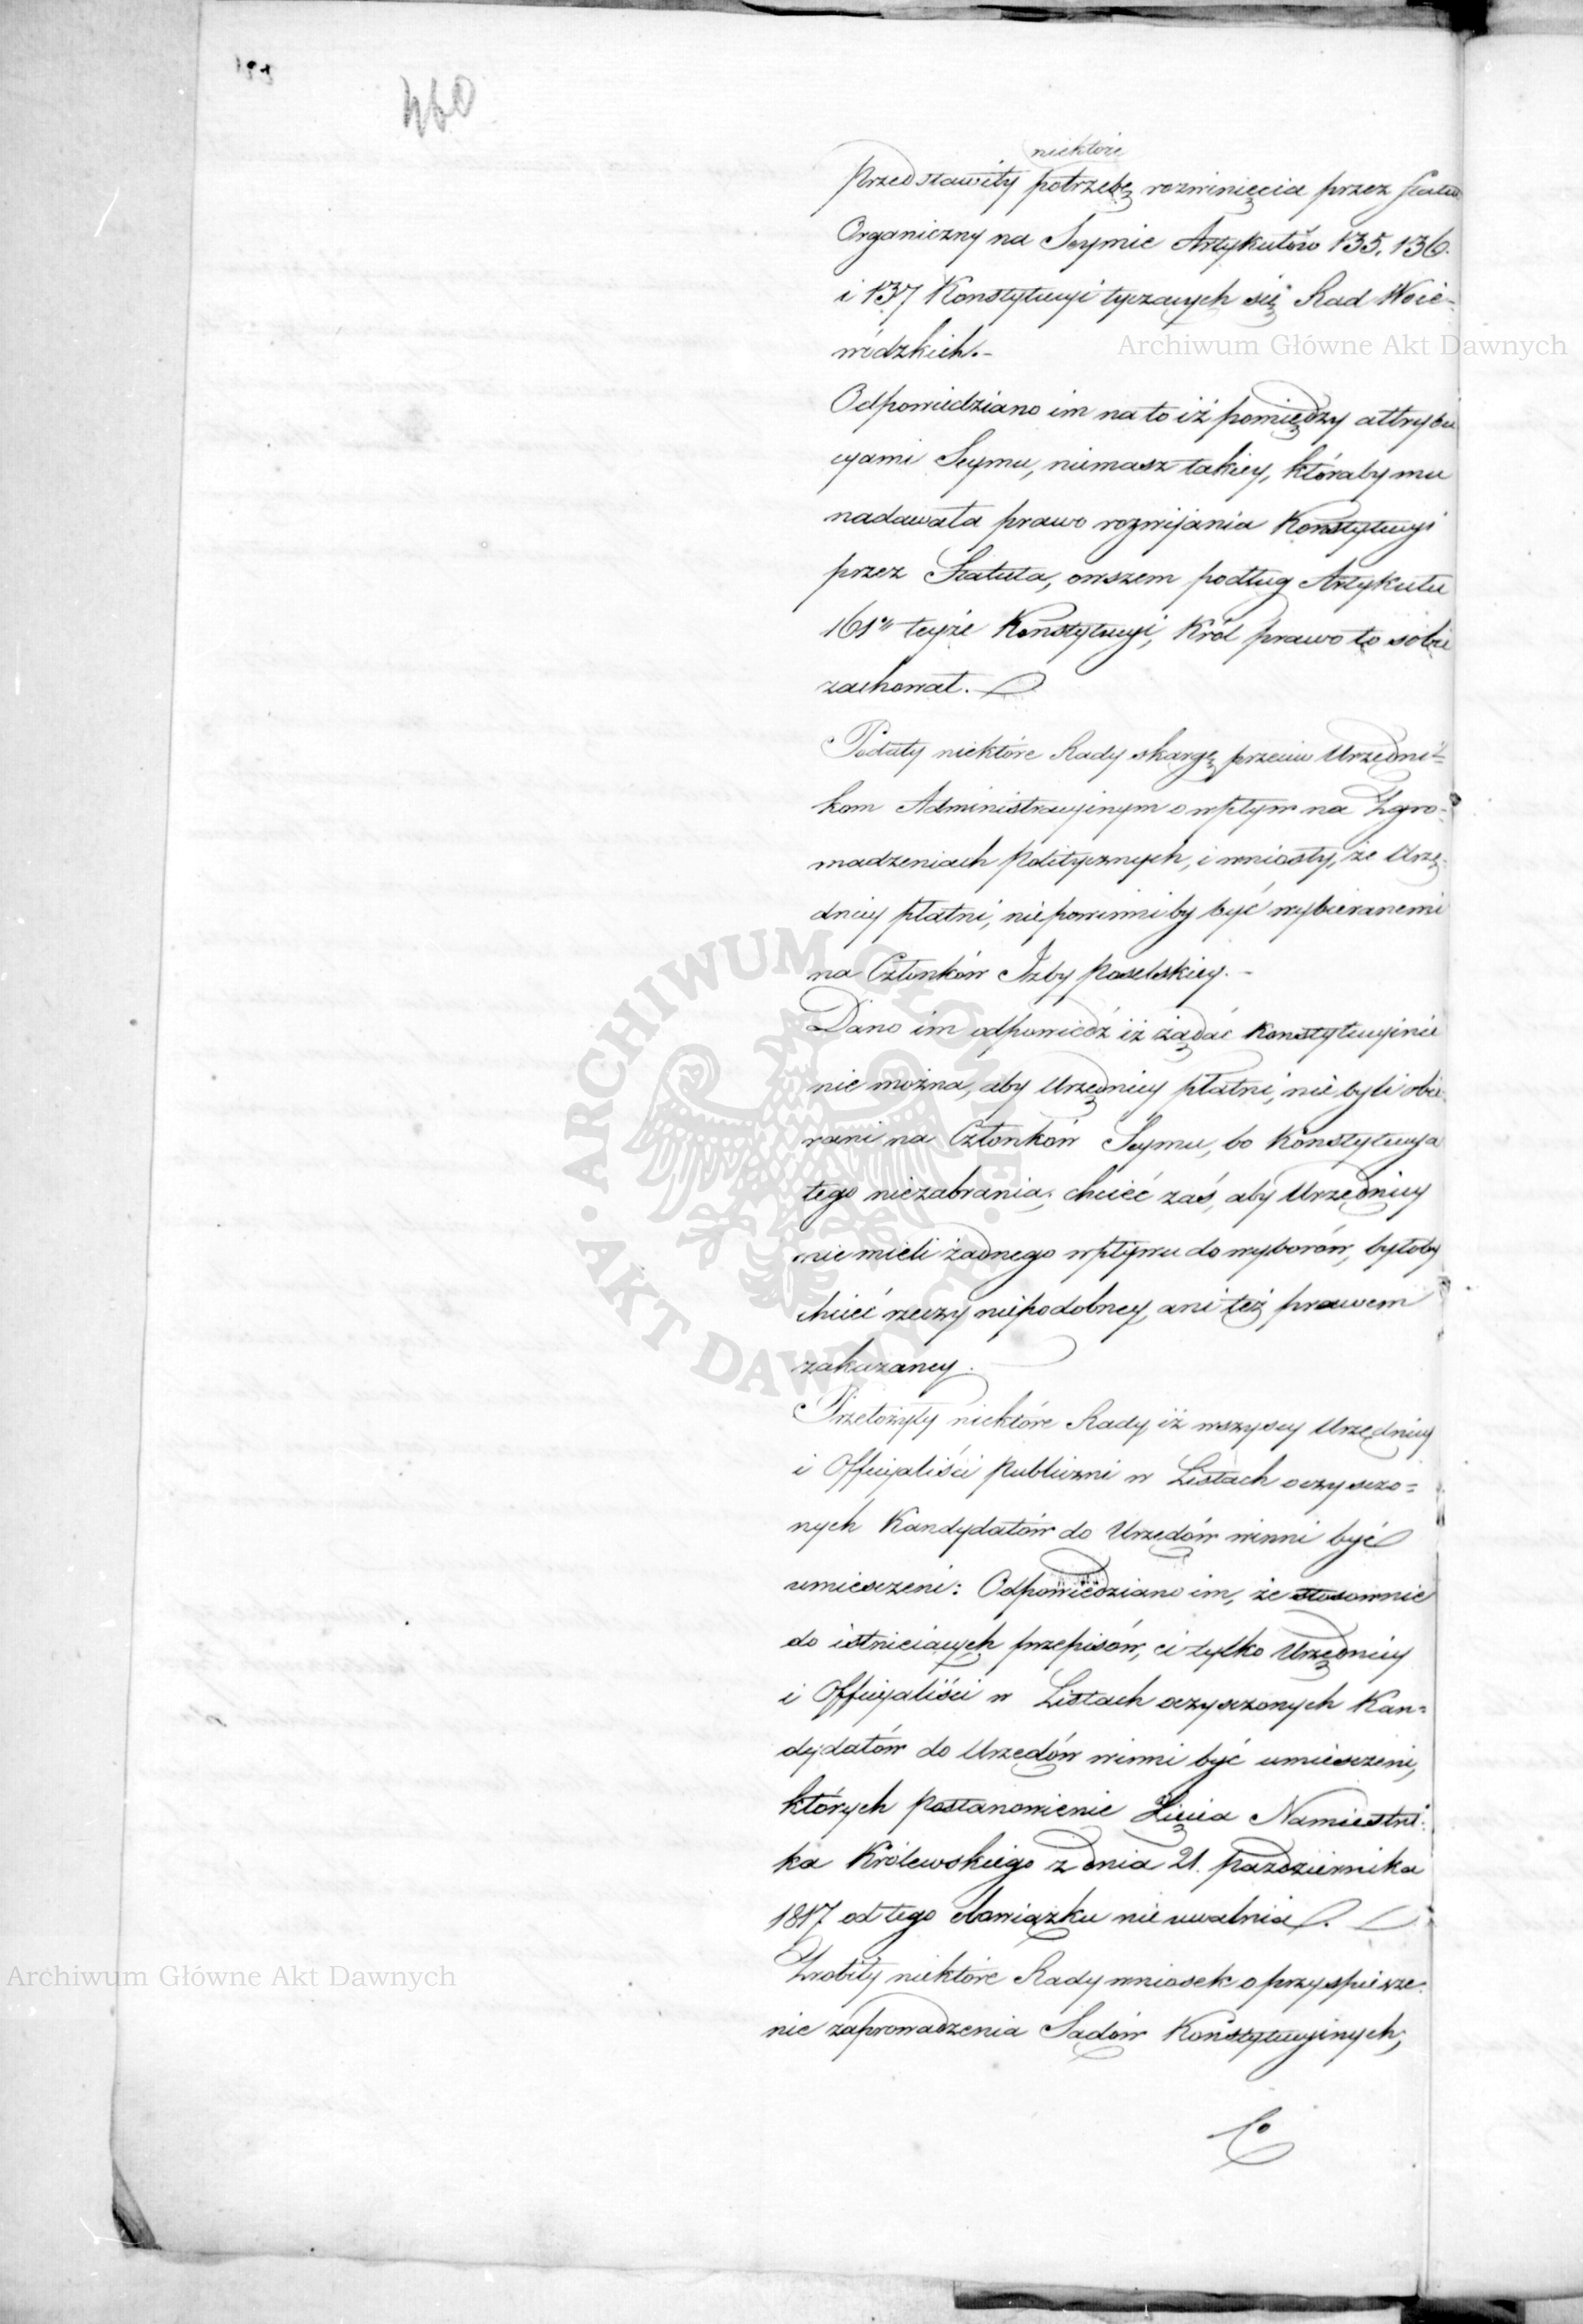 460
niektóre
Przedstawiły potrzebę rozwinięcia przez Statut
Organiczny na Seymie Artykułów 135, 136.
i 137 Konstytucyi tyczących się Rad Woie-
wódzkich.-
Odpowiedziano im na to iż pomiędzy attrybu
cyami Seymu, niemasz takiey, któraby mu
nadawała prawo rozwijania Konstytucyi
przez Statuta, owszem podług Artykułu
161go teyże Konstytucyi, Król prawo to sobie
zachował.
Podały niektóre Rady skargę przeciw Urzędni=
kom Administracyinym o wpływ na Zgro-
madzeniach Politycznych, i wniosły, że Urzę-
dnicy płatni, niepowinniby być wybieranemi
na Członków Izby Poselskiey.-
Dano im odpowiedź iż żądać Konstytucyinie
nie można, aby Urzędnicy płatni, nie byli obie-
rani na Członków Seymu, bo Konstytucya
tego niezabrania; chcieć zaś, aby Urzędnicy
nie mieli żadnego wpływu do wyborów, byłoby
chcieć rzeczy niepodobney, ani też prawem
zakazaney.
Przełożyły niektóre Rady, iż wszyscy Urzędnicy
i Officyaliści Publiczni w Listach oczyszczo=
nych Kandydatów do Urzędów winni być
umieszczeni: Odpowiedziano im, że stosownie
do istnieiących przepisów, ci tylko Urzędnicy
i Officyaliści w Listach oczyszczonych Kan=
dydatów do Urzędów winni być umieszczeni,
których Postanowienie Xięcia Namiestni-
ka Królewskiego z dnia 21. Października
1817 od tego obowiązku nie uwalnia.
Zrobiły niektóre Rady wniosek o przyspiesze-
nie zaprowadzenia Sądów Konstytucyinych,
Co
Archiwum Główne Akt Dawnych
ARCHIWUM GŁÓWNE
AKT DAWNYCH
Archiwum Główne Akt Dawnych